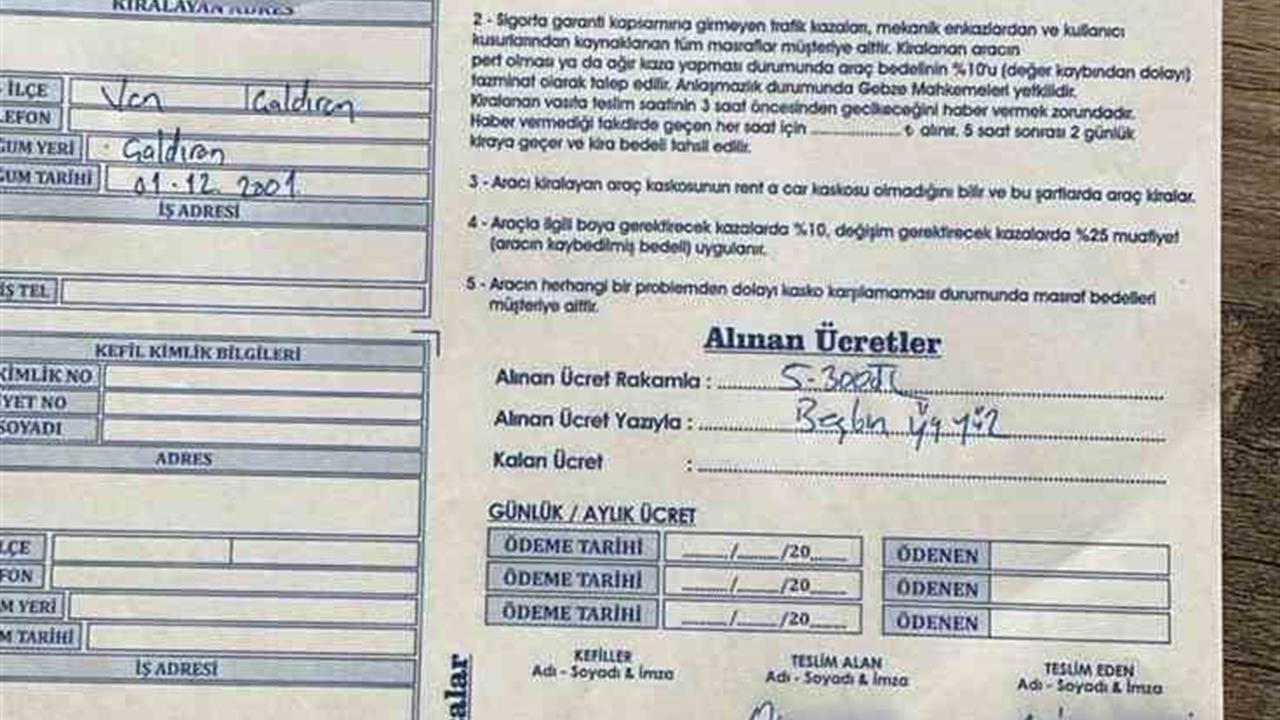 KİRALAYAN ADRES
İLÇE Van Çaldıran
LEFON
ĞUM YERİ Çaldıran
ĞUM TARİHİ 01.12.2001
İŞ ADRESİ
İŞ TEL
KEFİL KİMLİK BİLGİLERİ
KİMLİK NO
YET NO
SOYADI
ADRES
LÇE
FON
M YERİ
M TARİHİ
İŞ ADRESİ
2 - Sigorta garanti kapsamına girmeyen trafik kazaları, mekanik enkazlardan ve kullanıcı
kusurlarından kaynaklanan tüm masraflar müşteriye aittir. Kiralanan aracın
pert olması ya da ağır kaza yapması durumunda araç bedelinin %10'u (değer kaybından dolayı)
tazminat olarak talep edilir. Anlaşmazlık durumunda Gebze Mahkemeleri yetkilidir.
Kiralanan vasıta teslim saatinin 3 saat öncesinden gecikeceğini haber vermek zorundadır.
Haber vermediği takdirde geçen her saat için .................... ₺ alınır. 5 saat sonrası 2 günlük
kiraya geçer ve kira bedeli tahsil edilir.
3 - Aracı kiralayan araç kaskosunun rent a car kaskosu olmadığını bilir ve bu şartlarda araç kiralar.
4 - Araçla ilgili boya gerektirecek kazalarda %10, değişim gerektirecek kazalarda %25 muafiyet
(aracın kaybedilmiş bedeli) uygulanır.
5 - Aracın herhangi bir problemden dolayı kasko karşılamaması durumunda masraf bedelleri
müşteriye aittir.
Alınan Ücretler
Alınan Ücret Rakamla : 5-300TL
Alınan Ücret Yazıyla : Beşbin Üç yüz
Kalan Ücret :
GÜNLÜK / AYLIK ÜCRET
ÖDEME TARİHİ ....../....../20...... ÖDENEN
ÖDEME TARİHİ ....../....../20...... ÖDENEN
ÖDEME TARİHİ ....../....../20...... ÖDENEN
KEFİLLER
Adı - Soyadı & İmza
TESLİM ALAN
Adı - Soyadı & İmza
TESLİM EDEN
Adı - Soyadı & İmza
alar